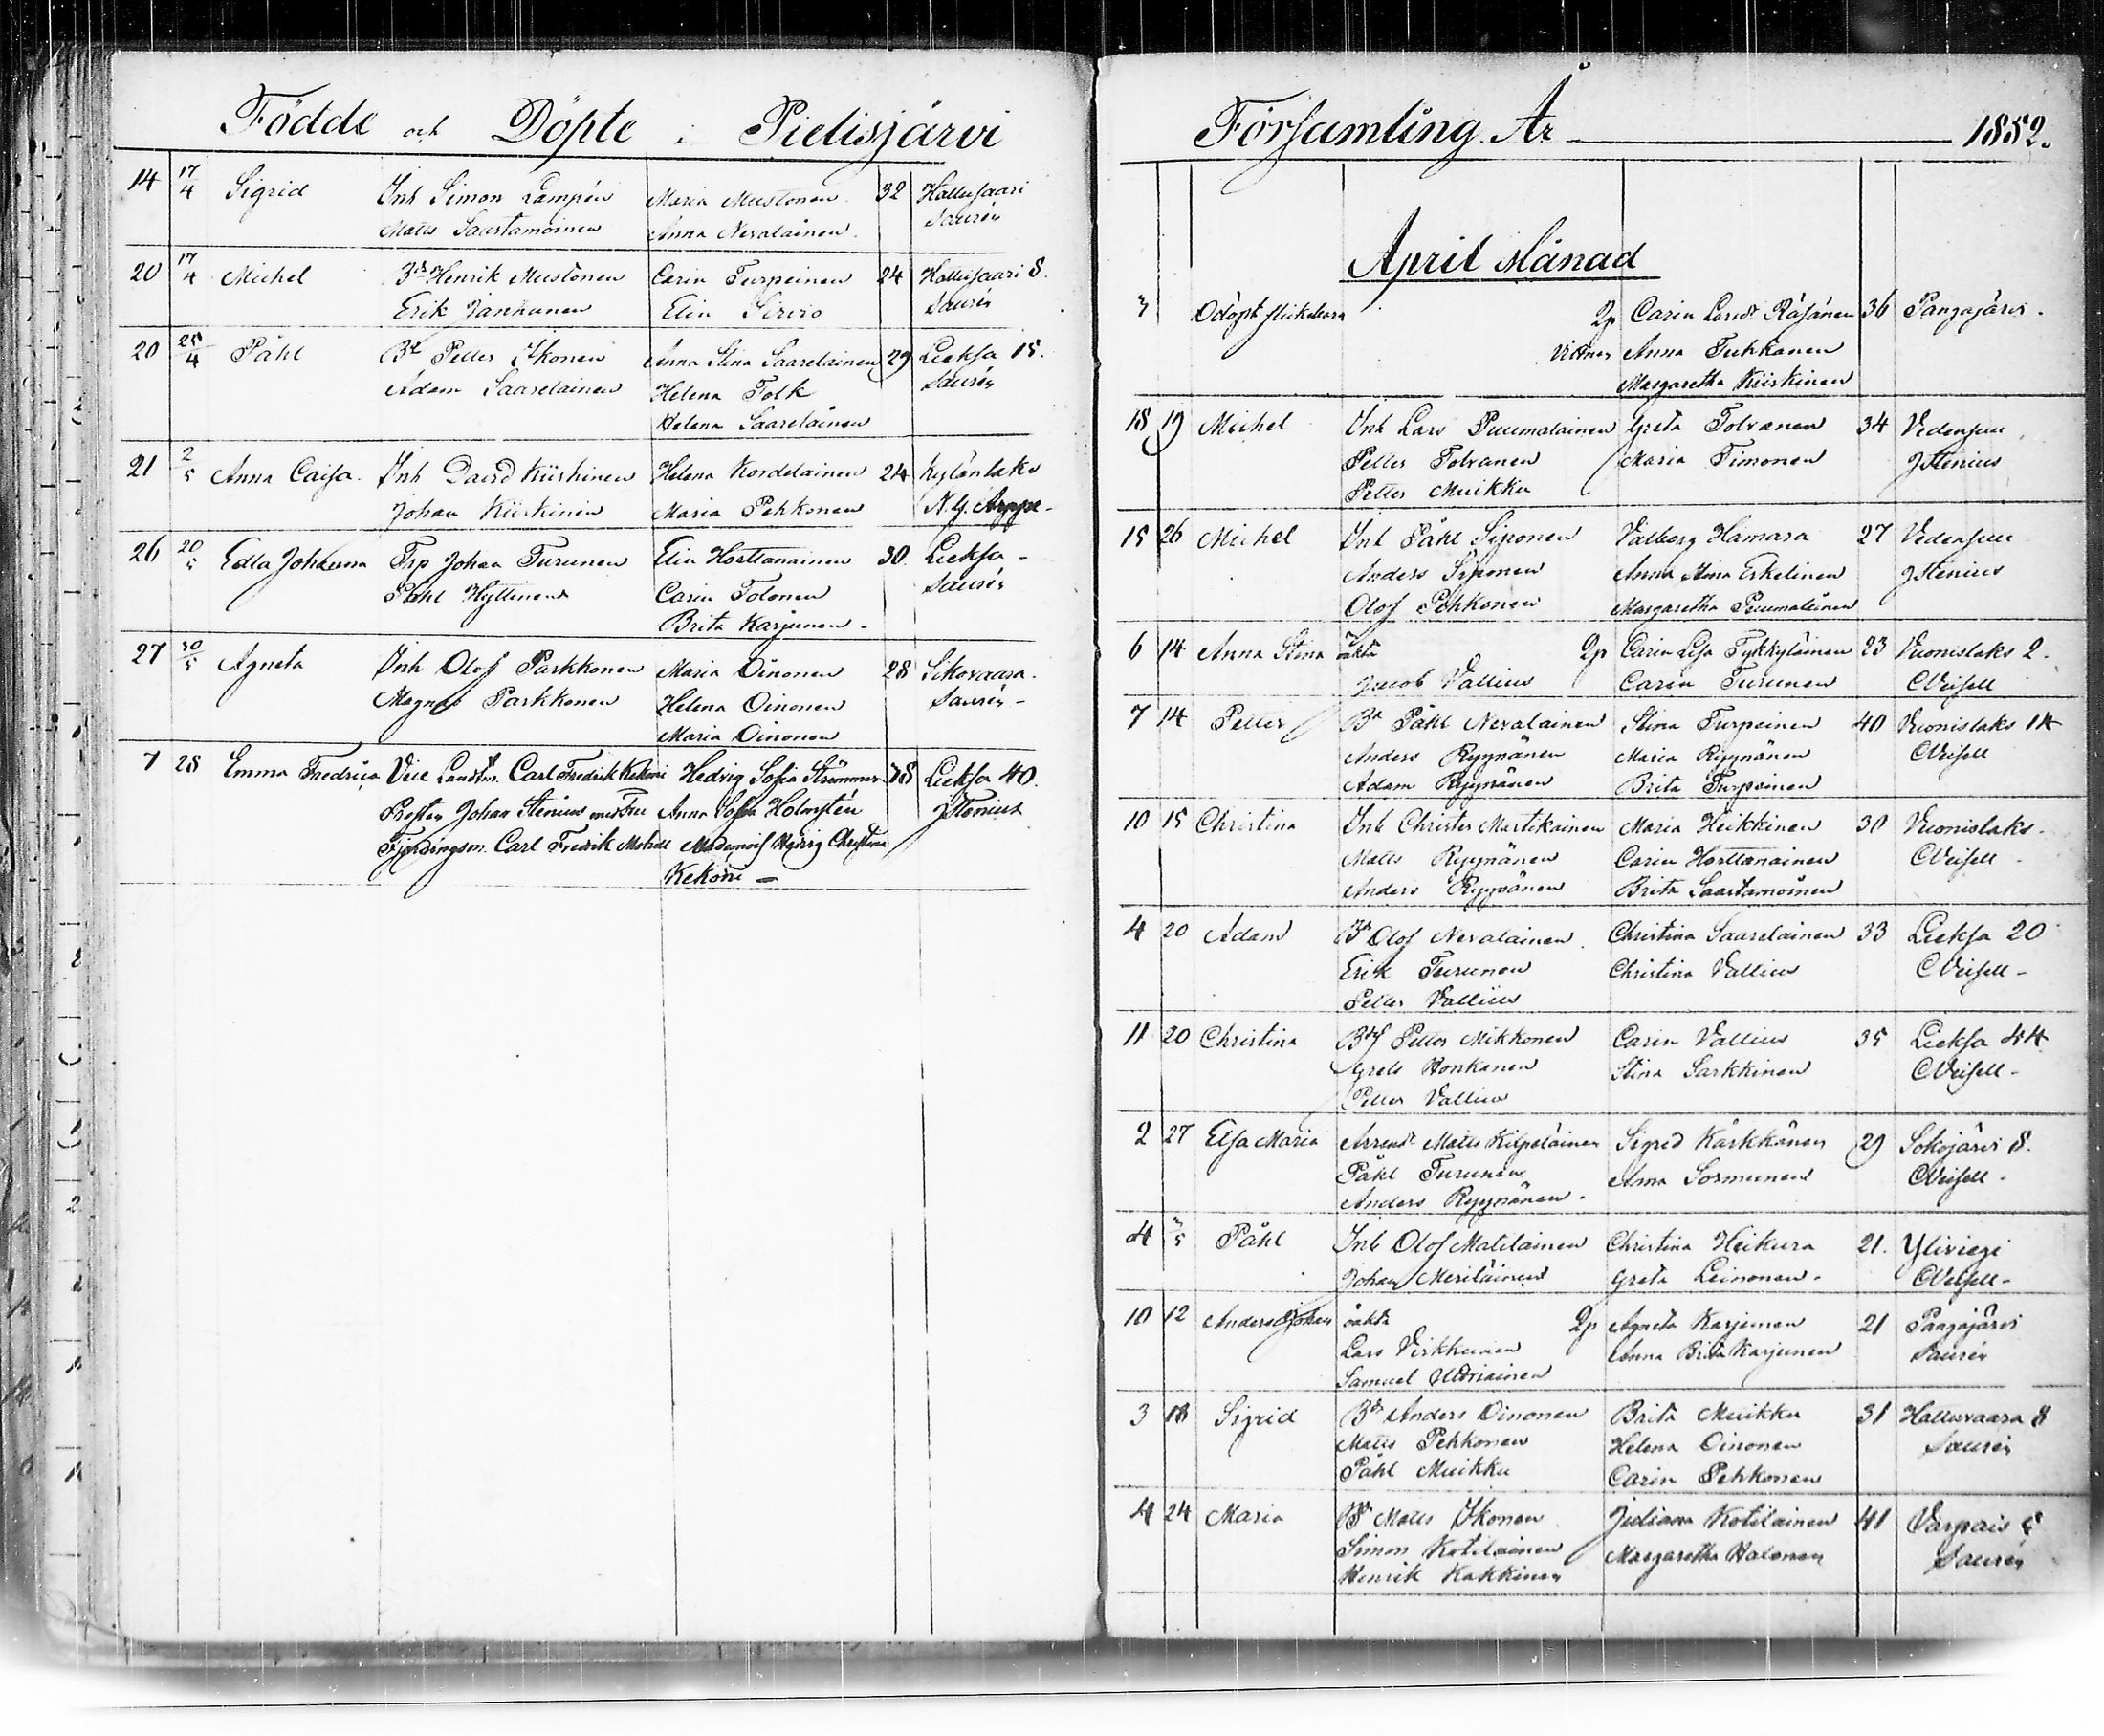 Födde och Döpte i Pielisjärvi
14 17/4 Sigrid Inh Simon Lampén Maria Mustonen 32 Hallusaari
Matts Saastamoinen Anna Nevalainen Saurén
20 17/4 Michel Bd Henrik Mustonen Carin Turpeinen 24 Hallusaari 8.
Erik Janhunen Elin Sirviö Saurén
20 25/4 Påhl Bd Petter Ikonen Anna Stina Saarelainen 29 Lieksa 15.
Adam Saarelainen Helena Tolk Saurén
Helena Saarelainen
21 2/5 Anna Caisa Inh David Kiiskinen Helena Kordelainen 24 Kylänlaks
Johan Kiiskinen Maria Pehkonen N. G. Arppe
26 20/5 Edla Johanna Trp Johan Turunen Elin Horttanainen 30. Lieksa
Påhl Hyttinen Carin Tolonen Saurén
Brita Karjunen
27 30/5 Agneta Inh Olof Parkkonen Maria Oinonen 28 Sikovaara
Magnus Parkkonen Helena Oinonen Saurén
Maria Oinonen
7 28 Emma Fredrica Vice Landtm. Carl Fredrik Kekoni Hedvig Sofia Strömmer 38 Lieksa 40.
Prosten Johan Stenius med Fru Anna Sofia Holmstén J Stenius
Fjerdingsm. Carl Fredrik Mohell Mademois Hedvig Christina
Kekoni
Församling År 1852.
April Månad
3 Odöpt flickebarn 2p Carin Larsdr Räsänen 36 Pangajärvi.
Vittnar Anna Tuhkanen
Margaretha Kiiskinen
18 19 Michel Inh Lars Puumalainen Greta Tolvanen 34 Vedensuu
Petter Tolvanen Maria Timonen J Stenius
Petter Muikku
15 26 Michel Inh Påhl Siponen Valborg Hämärä 27 Vedensuu
Anders Siponen Anna Stina Eskelinen J Stenius
Olof Pehkonen Margaretha Puumalainen
6 14 Anna Stina oäkta 2p Carin Lisa Tykkyläinen 23 Vuonislaks 2.
Jacob Vallius Carin Turunen
7 14 Petter Bd Påhl Nevalainen Stina Turpeinen 40 Vuonislaks 14
Anders Ryynänen Maria Ryynänen
Adam Ryynänen Brita Turpeinen
10 15 Christina Inh Christer Martikainen Maria Heikkinen 30 Vuonislaks
Matts Ryynänen Carin Horttanainen
Anders Ryynänen Brita Saastamoinen
4 20 Adam Bd Olof Nevalainen Christina Saarelainen 33 Lieksa 20
Erik Turunen Christina Vallius
Petter Vallius
11 20 Christina Petter Mikkonen Carin Vallius 35 Lieksa 44
Grels Honkanen Stina Sarkkinen
Petter Vallius
2 27 Elsa Maria Arrendr Matts Kilpeläinen Sigrid Kärkkänen 29 Sokojärvi 8.
Påhl Turunen Anna Sormunen
Anders Ryynänen
4 3/5 Påhl Inh Olof Matilainen Christina Heikura 21. Yliviexi
Johan Meriläinen Greta Leinonen
10 12 Anders Johan oäkta 2p Agneta Karjunen 21 Pangajärvi
Lars Virkkunen Anna Brita Karjunen Saurén
Samuel
3 18 Sigrid Bd Anders Oinonen Brita Muikku 31 Hattuvaara 8
Matts Pehkonen Helena Oinonen Saurén
Påhl Muikku Carin Pehkonen
4 24 Maria Bd Matts Ikonen Juliana Kotilainen 41 Varpais 5
Simon Kotilainen Margaretha Halonen Saurén
Henrik Kakkinen